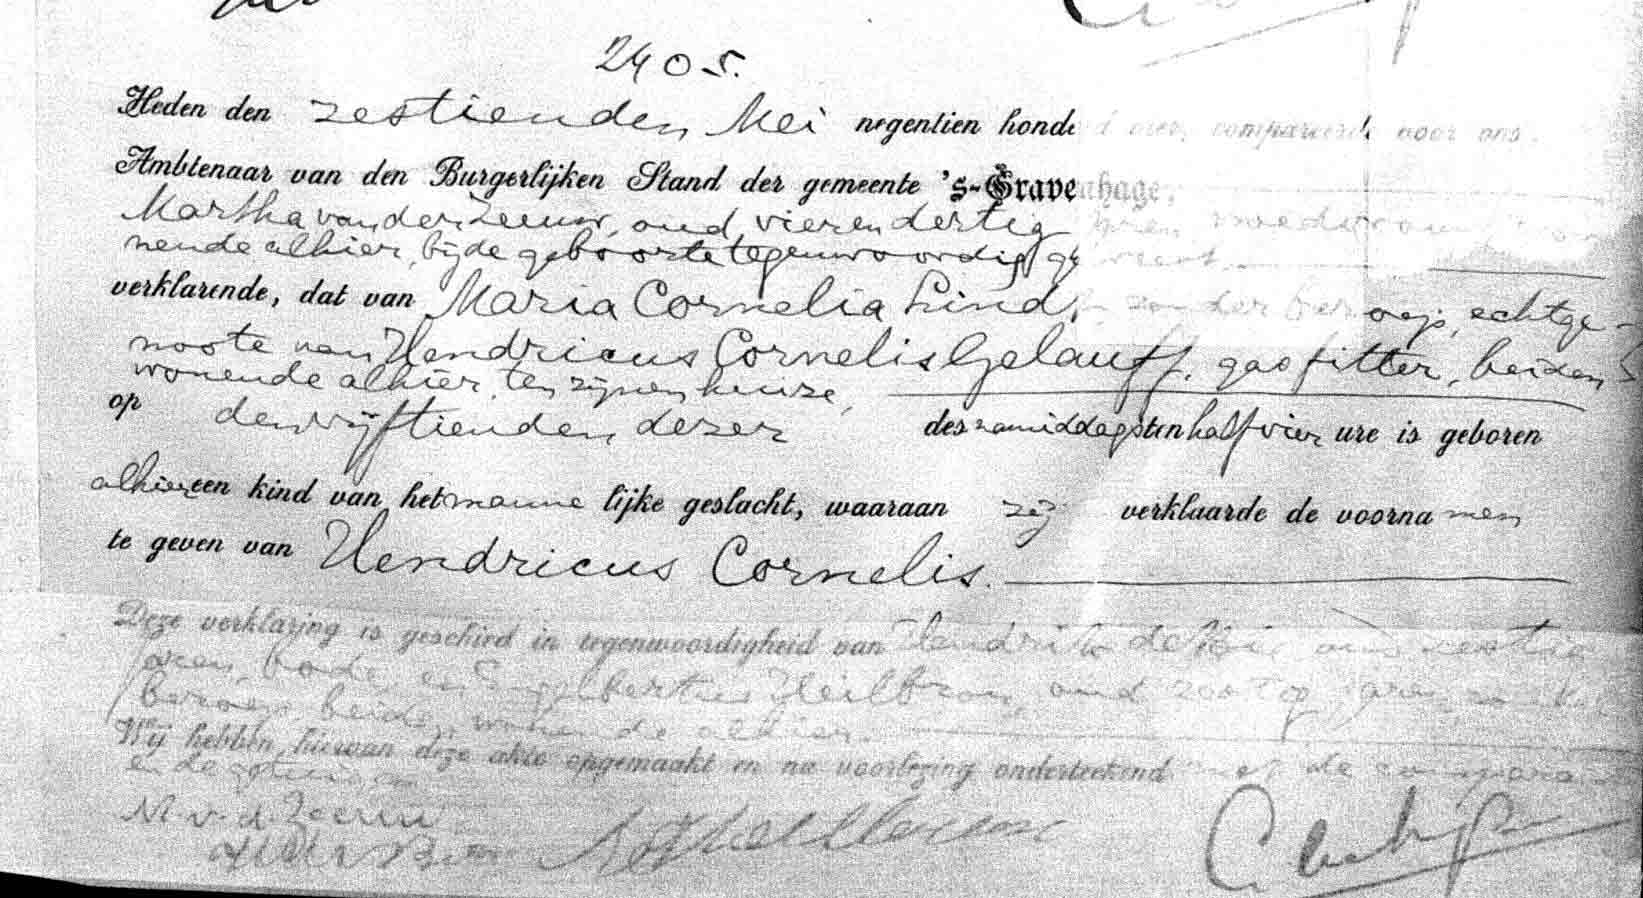 2405.
Heden den zestienden Mei negentien honderd vier, compareerde voor ons.
Ambtenaar van den Burgerlijken Stand der gemeente 's-Gravenhage,
Martha van der Zeeuw, oud vierendertig jaren, vroedvrouw, wo
nende alhier, bij de geboorte tegenwoordig geweest,
verklarende, dat van Maria Cornelia Lind zonder beroep, echtge-
noote van Hendricus Cornelis Gelauff, gasfitter, beiden
wonende alhier, ten zijnen huize,
op den vijftienden dezer des namiddags ten half vier ure is geboren
alhier een kind van het manne lijke geslacht, waaraan zij verklaarde de voorna men
te geven van Hendricus Cornelis.
Deze verklaring is geschied in tegenwoordigheid van Hendrik de oud zestig
jaren, bode en Engelbertus Heilbron, oud zestig jaren, zonder
beroep, beide wonende alhier.
Wij hebben hiervan deze akte opgemaakt en na voorlezing onderteekend met de comparante
en de getuigen
M. v. d. Zeeuw